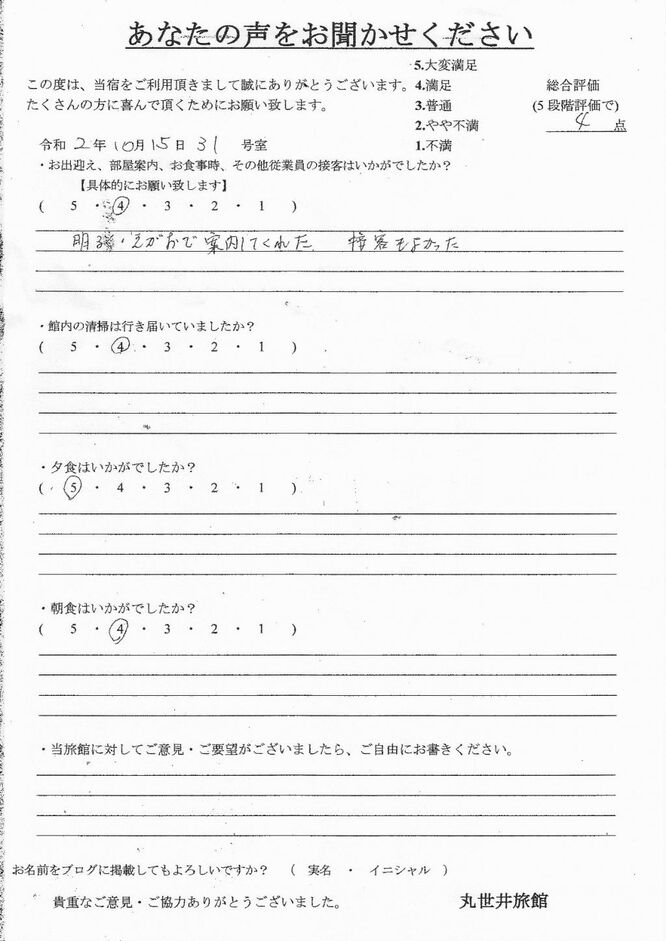 あなたの声をお聞かせください
この度は、当宿をご利用頂きまして誠にありがとうございます。
たくさんの方に喜んで頂くためにお願い致します。
5.大変満足
4.満足
3.普通
2.やや不満
1.不満
総合評価
(5段階評価で)
4 点
令和 2年 10月 15日 31 号室
・お出迎え、部屋案内、お食事時、その他従業員の接客はいかがでしたか?
【具体的にお願い致します】
( 5 ・ 4 ・ 3 ・ 2 ・ 1 )
明るく えがおで案内してくれた 接客もよかった
・館内の清掃は行き届いていましたか?
( 5 ・ 4 ・ 3 ・ 2 ・ 1 )
・夕食はいかがでしたか?
( 5 ・ 4 ・ 3 ・ 2 ・ 1 )
・朝食はいかがでしたか?
( 5 ・ 4 ・ 3 ・ 2 ・ 1 )
・当旅館に対してご意見・ご要望がございましたら、ご自由にお書きください。
お名前をブログに掲載してもよろしいですか? ( 実名 ・ イニシャル )
貴重なご意見・ご協力ありがとうございました。
丸世井旅館